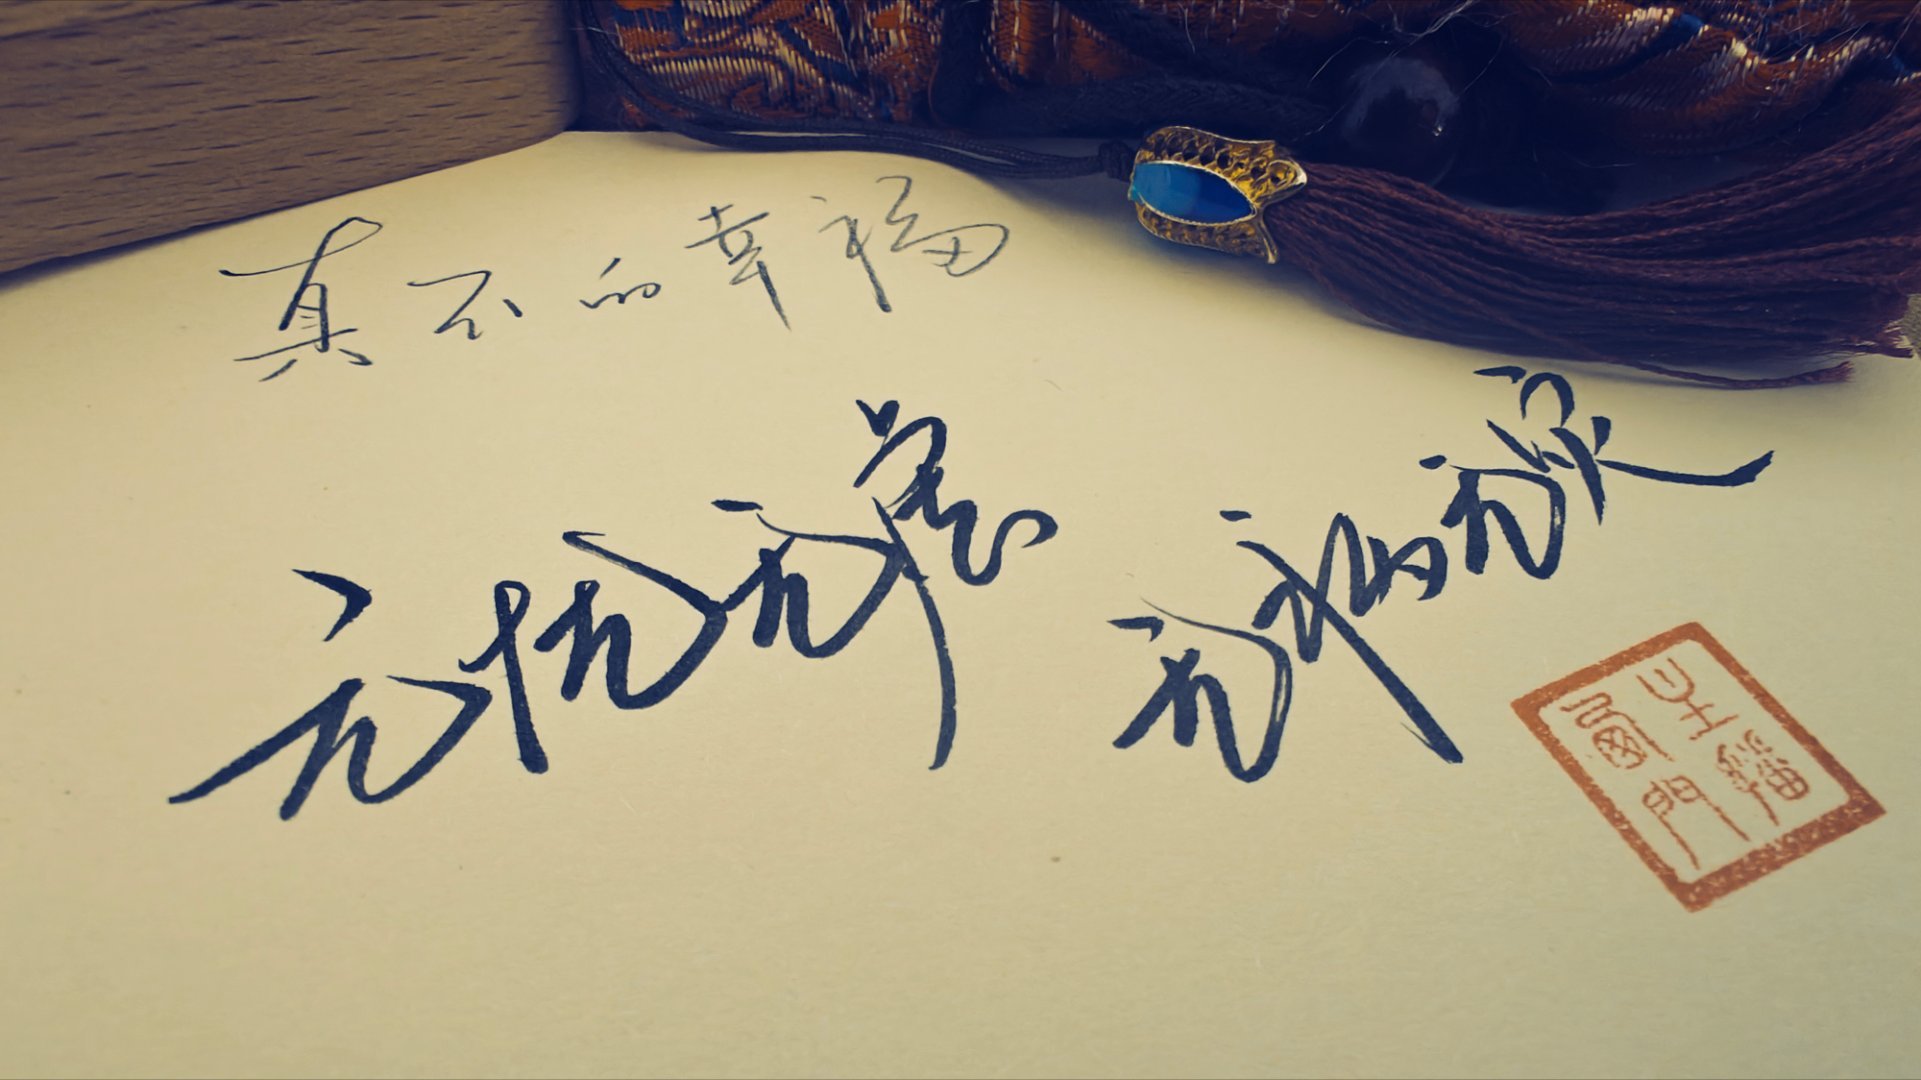 真正的幸福
无忧无虑 无拘无束